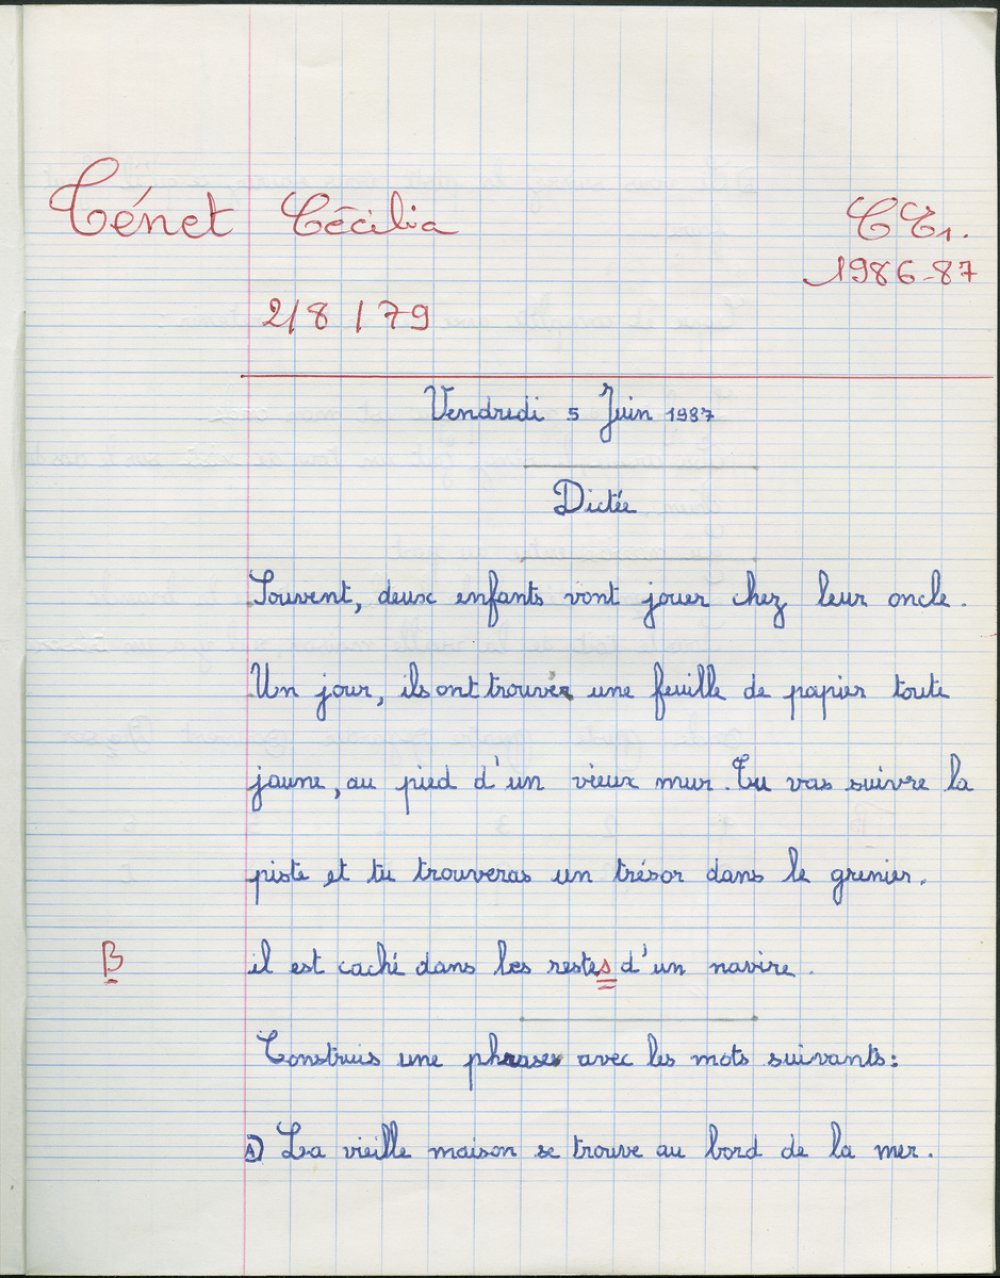 Ténet Cécilia CE1.
1986-87
2/8/79
Vendredi 5 Juin 1987
Dictée
Souvent, deux enfants vont jouer chez leur oncle.
Un jour, ils ont trouvér une feuille de papier toute
jaune, au pied d'un vieux mur. Tu vas suivre la
piste et tu trouveras un trésor dans le grenier.
B il est caché dans les restes d'un navire.
Construis une phrase avec les mots suivants:
A) La vieille maison se trouve au bord de la mer.